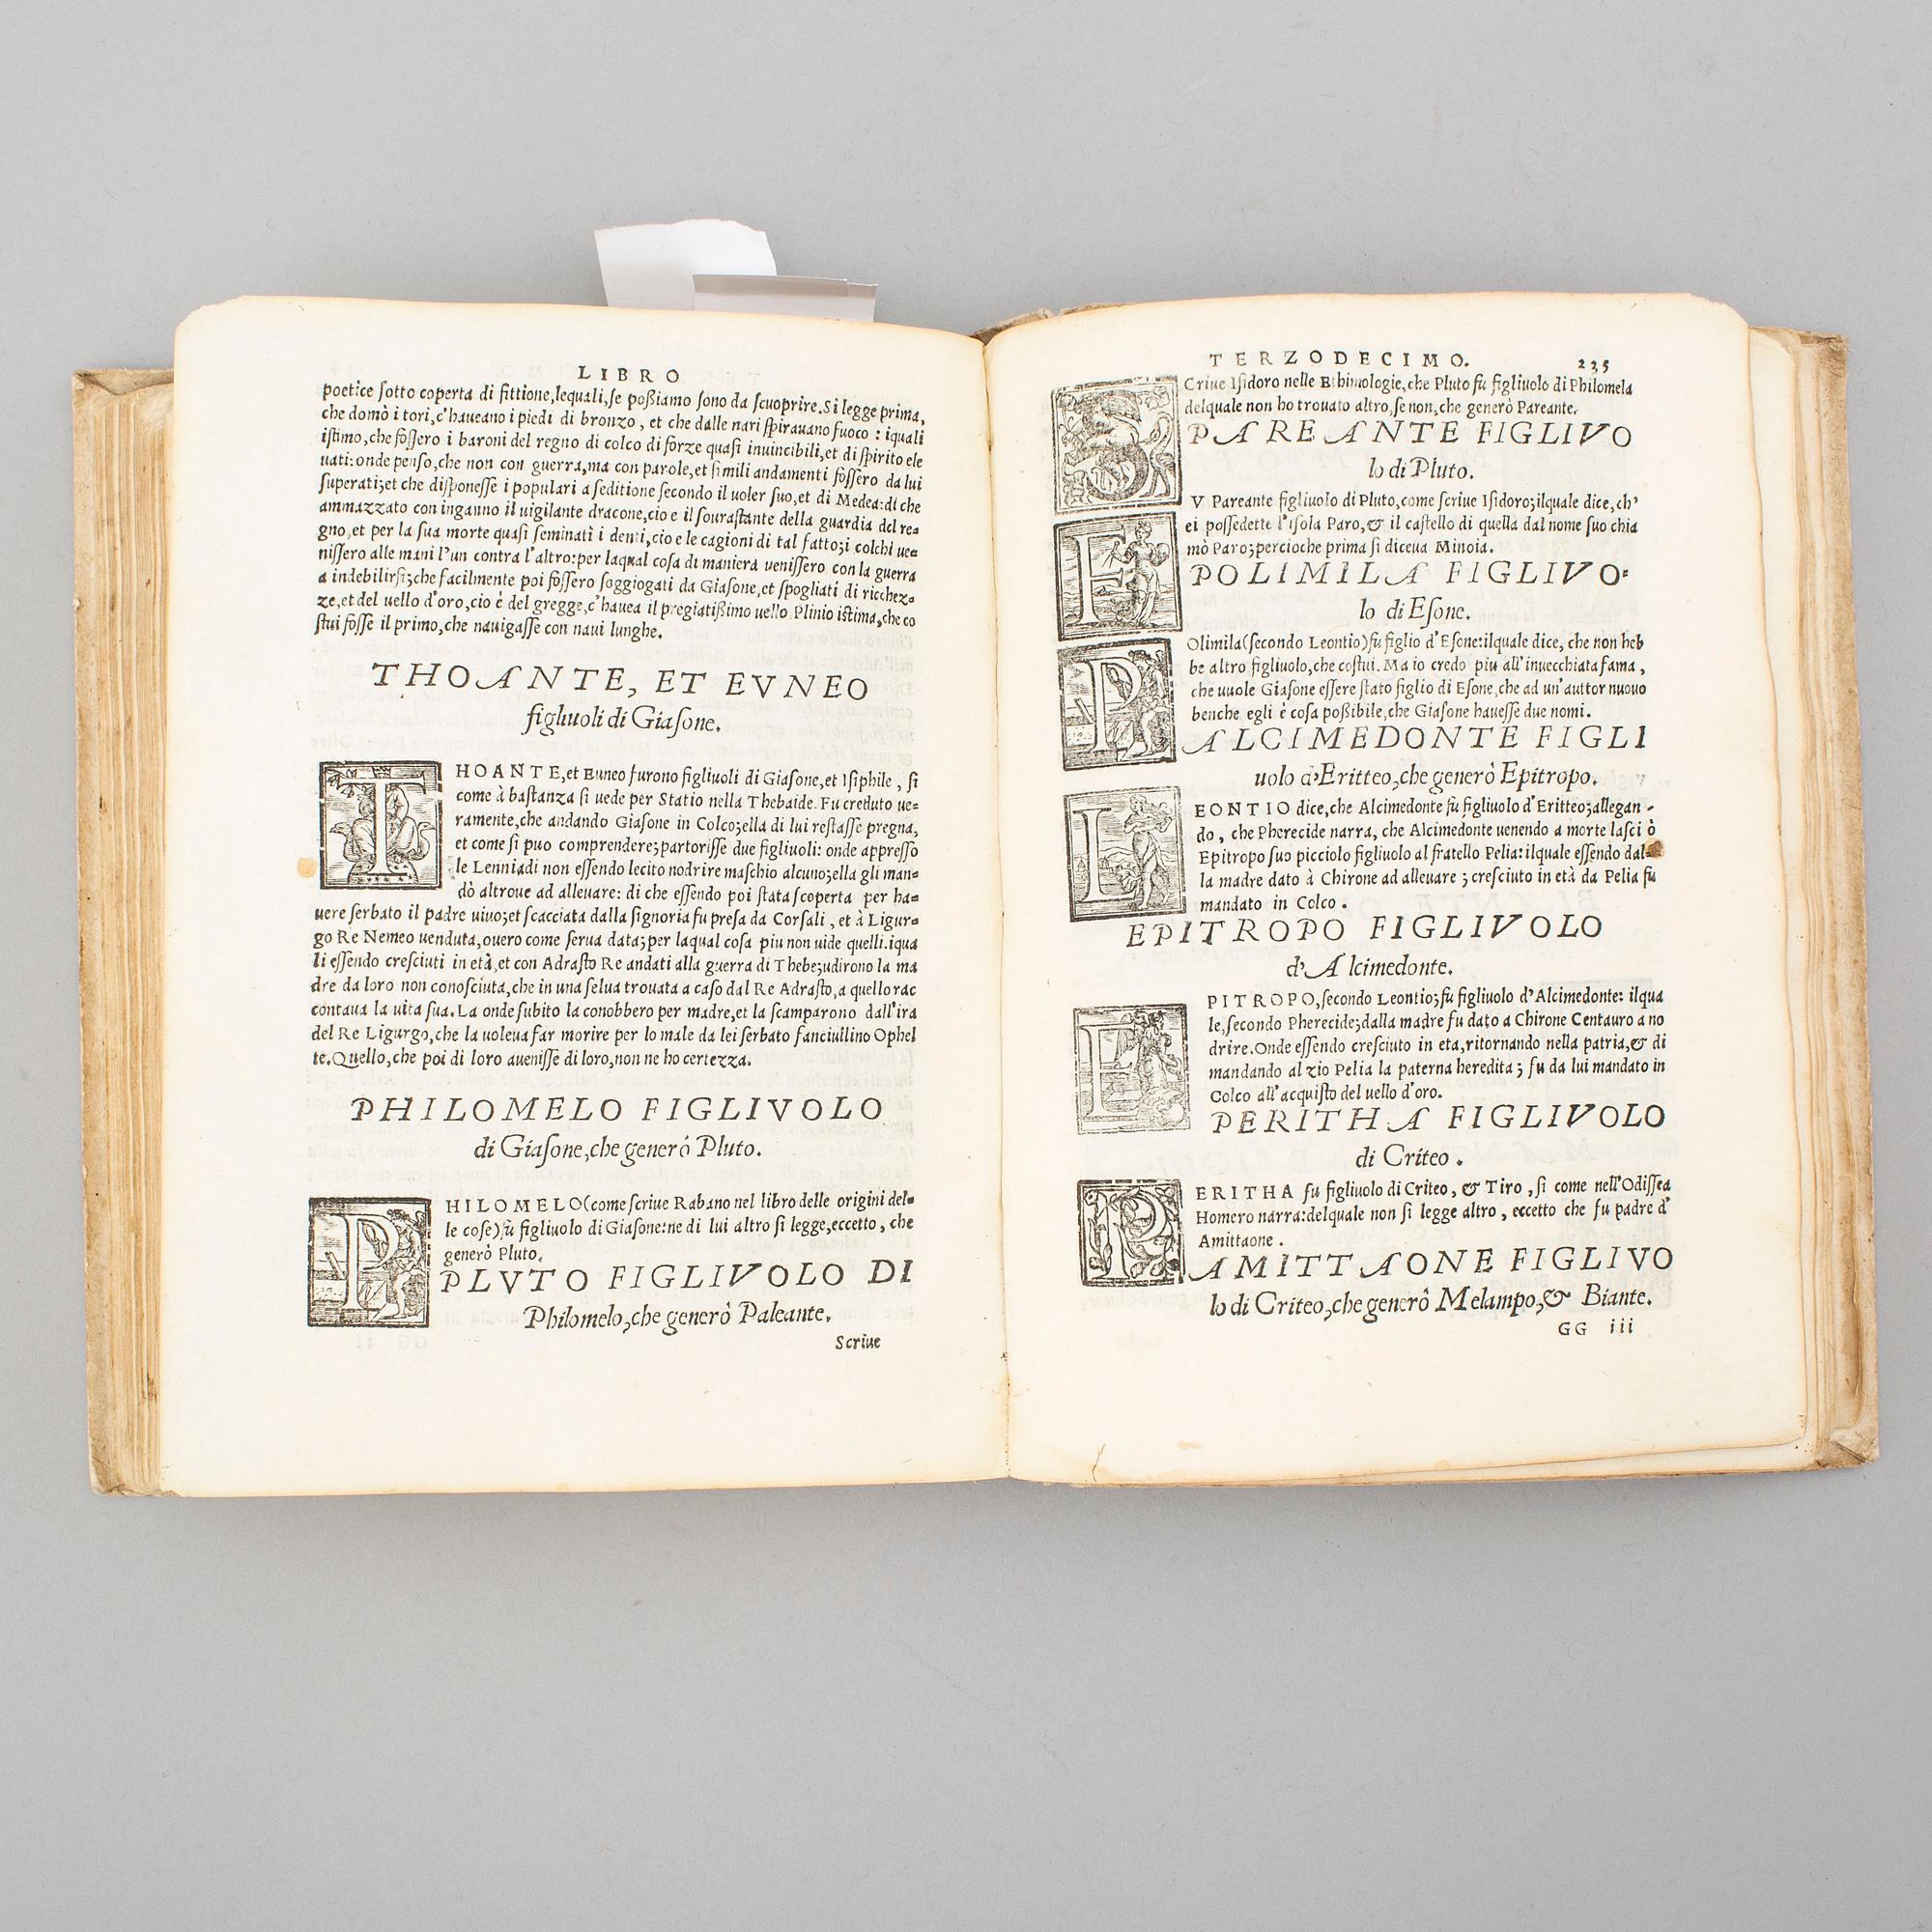 LIBRO
poetice ſotto coperta di fittione,lequali,ſe poßiamo ſono da ſcuoprire.Si legge prima,
che domò i tori,c'haueano i piedi di bronzo, et che dalle nari ſpirauano fuoco : iquali
iſtimo,che foſſero i baroni del regno di colco di forze quaſi inuincibili,et di ſpirito ele
uati:onde penſo,che non con guerra,ma con parole,et ſimili andamenti foſſero da lui
ſuperati;et che diſponeſſe i populari a ſeditione ſecondo il uoler ſuo,et di Medea:di che
ammazzato con inganno il uigilante dracone,cio e il ſouraſtante della guardia del re=
gno,et per la ſua morte quaſi ſeminati i denti,cio e le cagioni di tal fatto;i colchi ue=
niſſero alle mani l'un contra l'altro:per laqual coſa di maniera ueniſſero con la guerra
a indebilirſi;che facilmente poi foſſero ſoggiogati da Giaſone,et ſpogliati di ricchez=
ze,et del uello d'oro,cio è del gregge,c'hauea il pregiatißimo uello Plinio iſtima,che co
ſtui foſſe il primo,che nauigaſſe con naui lunghe.
THOANTE, ET EVNEO
figliuoli di Giaſone.
THOANTE,et Euneo furono figliuoli di Giaſone,et Iſiphile, ſi
come à baſtanza ſi uede per Statio nella Thebaide. Fu creduto ue=
ramente,che andando Giaſone in Colco;ella di lui reſtaſſe pregna,
et come ſi puo comprendere;partoriſſe due figliuoli: onde appreſſo
le Lenniadi non eſſendo lecito nodrire maſchio alcuno;ella gli man=
dò altroue ad alleuare: di che eſſendo poi ſtata ſcoperta per ha=
uere ſerbato il padre uiuo;et ſcacciata dalla ſignoria fu preſa da Corſali, et à Ligur=
go Re Nemeo uenduta,ouero come ſerua data;per laqual coſa piu non uide quelli.iqua
li eſſendo creſciuti in età,et con Adraſto Re andati alla guerra di Thebe;udirono la ma
dre da loro non conoſciuta,che in una ſelua trouata a caſo dal Re Adraſto,a quello rac
contaua la uita ſua.La onde ſubito la conobbero per madre,et la ſcamparono dall'ira
del Re Ligurgo,che la uoleua far morire per lo male da lei ſerbato fanciullino Ophel
te.Quello,che poi di loro aueniſſe di loro,non ne ho certezza.
PHILOMELO FIGLIVOLO
di Giaſone,che generò Pluto.
PHILOMELO(come ſcriue Rabano nel libro delle origini del=
le coſe)fu figliuolo di Giaſone:ne di lui altro ſi legge,eccetto, che
generò Pluto.
PLVTO FIGLIVOLO DI
Philomelo,che generò Paleante.
Scriue
TERZODECIMO. 235
SCriue Iſidoro nelle Ethimologie,che Pluto fu figliuolo di Philomela
delquale non ho trouato altro,ſe non,che generò Pareante.
PAREANTE FIGLIVO
lo di Pluto.
FV Pareante figliuolo di Pluto,come ſcriue Iſidoro;ilquale dice,ch'
ei poſſedette l'iſola Paro,& il caſtello di quella dal nome ſuo chia
mò Paro;percioche prima ſi diceua Minoia.
POLIMILA FIGLIVO=
lo di Eſone.
POlimila(ſecondo Leontio)fu figlio d'Eſone:ilquale dice, che non heb
be altro figliuolo,che coſtui. Ma io credo piu all'inuecchiata fama,
che uuole Giaſone eſſere ſtato figlio di Eſone,che ad un'auttor nuouo
benche egli è coſa poßibile,che Giaſone haueſſe due nomi.
ALCIMEDONTE FIGLI
uolo d'Eritteo,che generò Epitropo.
LEONTIO dice,che Alcimedonte fu figliuolo d'Eritteo;allegan-
do, che Pherecide narra, che Alcimedonte uenendo a morte laſciò
Epitropo ſuo picciolo figliuolo al fratello Pelia:ilquale eſſendo dal=
la madre dato à Chirone ad alleuare ; creſciuto in età da Pelia fu
mandato in Colco.
EPITROPO FIGLIVOLO
d'Alcimedonte.
EPITROPO,ſecondo Leontio;fu figliuolo d'Alcimedonte: ilqua
le,ſecondo Pherecide;dalla madre fu dato a Chirone Centauro a no
drire.Onde eſſendo creſciuto in eta,ritornando nella patria,& di
mandando al zio Pelia la paterna heredita ; fu da lui mandato in
Colco all'acquiſto del uello d'oro.
PERITHA FIGLIVOLO
di Criteo.
PERITHA fu figliuolo di Criteo, & Tiro, ſi come nell'Odiſſea
Homero narra:delquale non ſi legge altro, eccetto che fu padre d'
Amittaone.
AMITTAONE FIGLIVO
lo di Criteo,che generò Melampo,& Biante.
GG iii